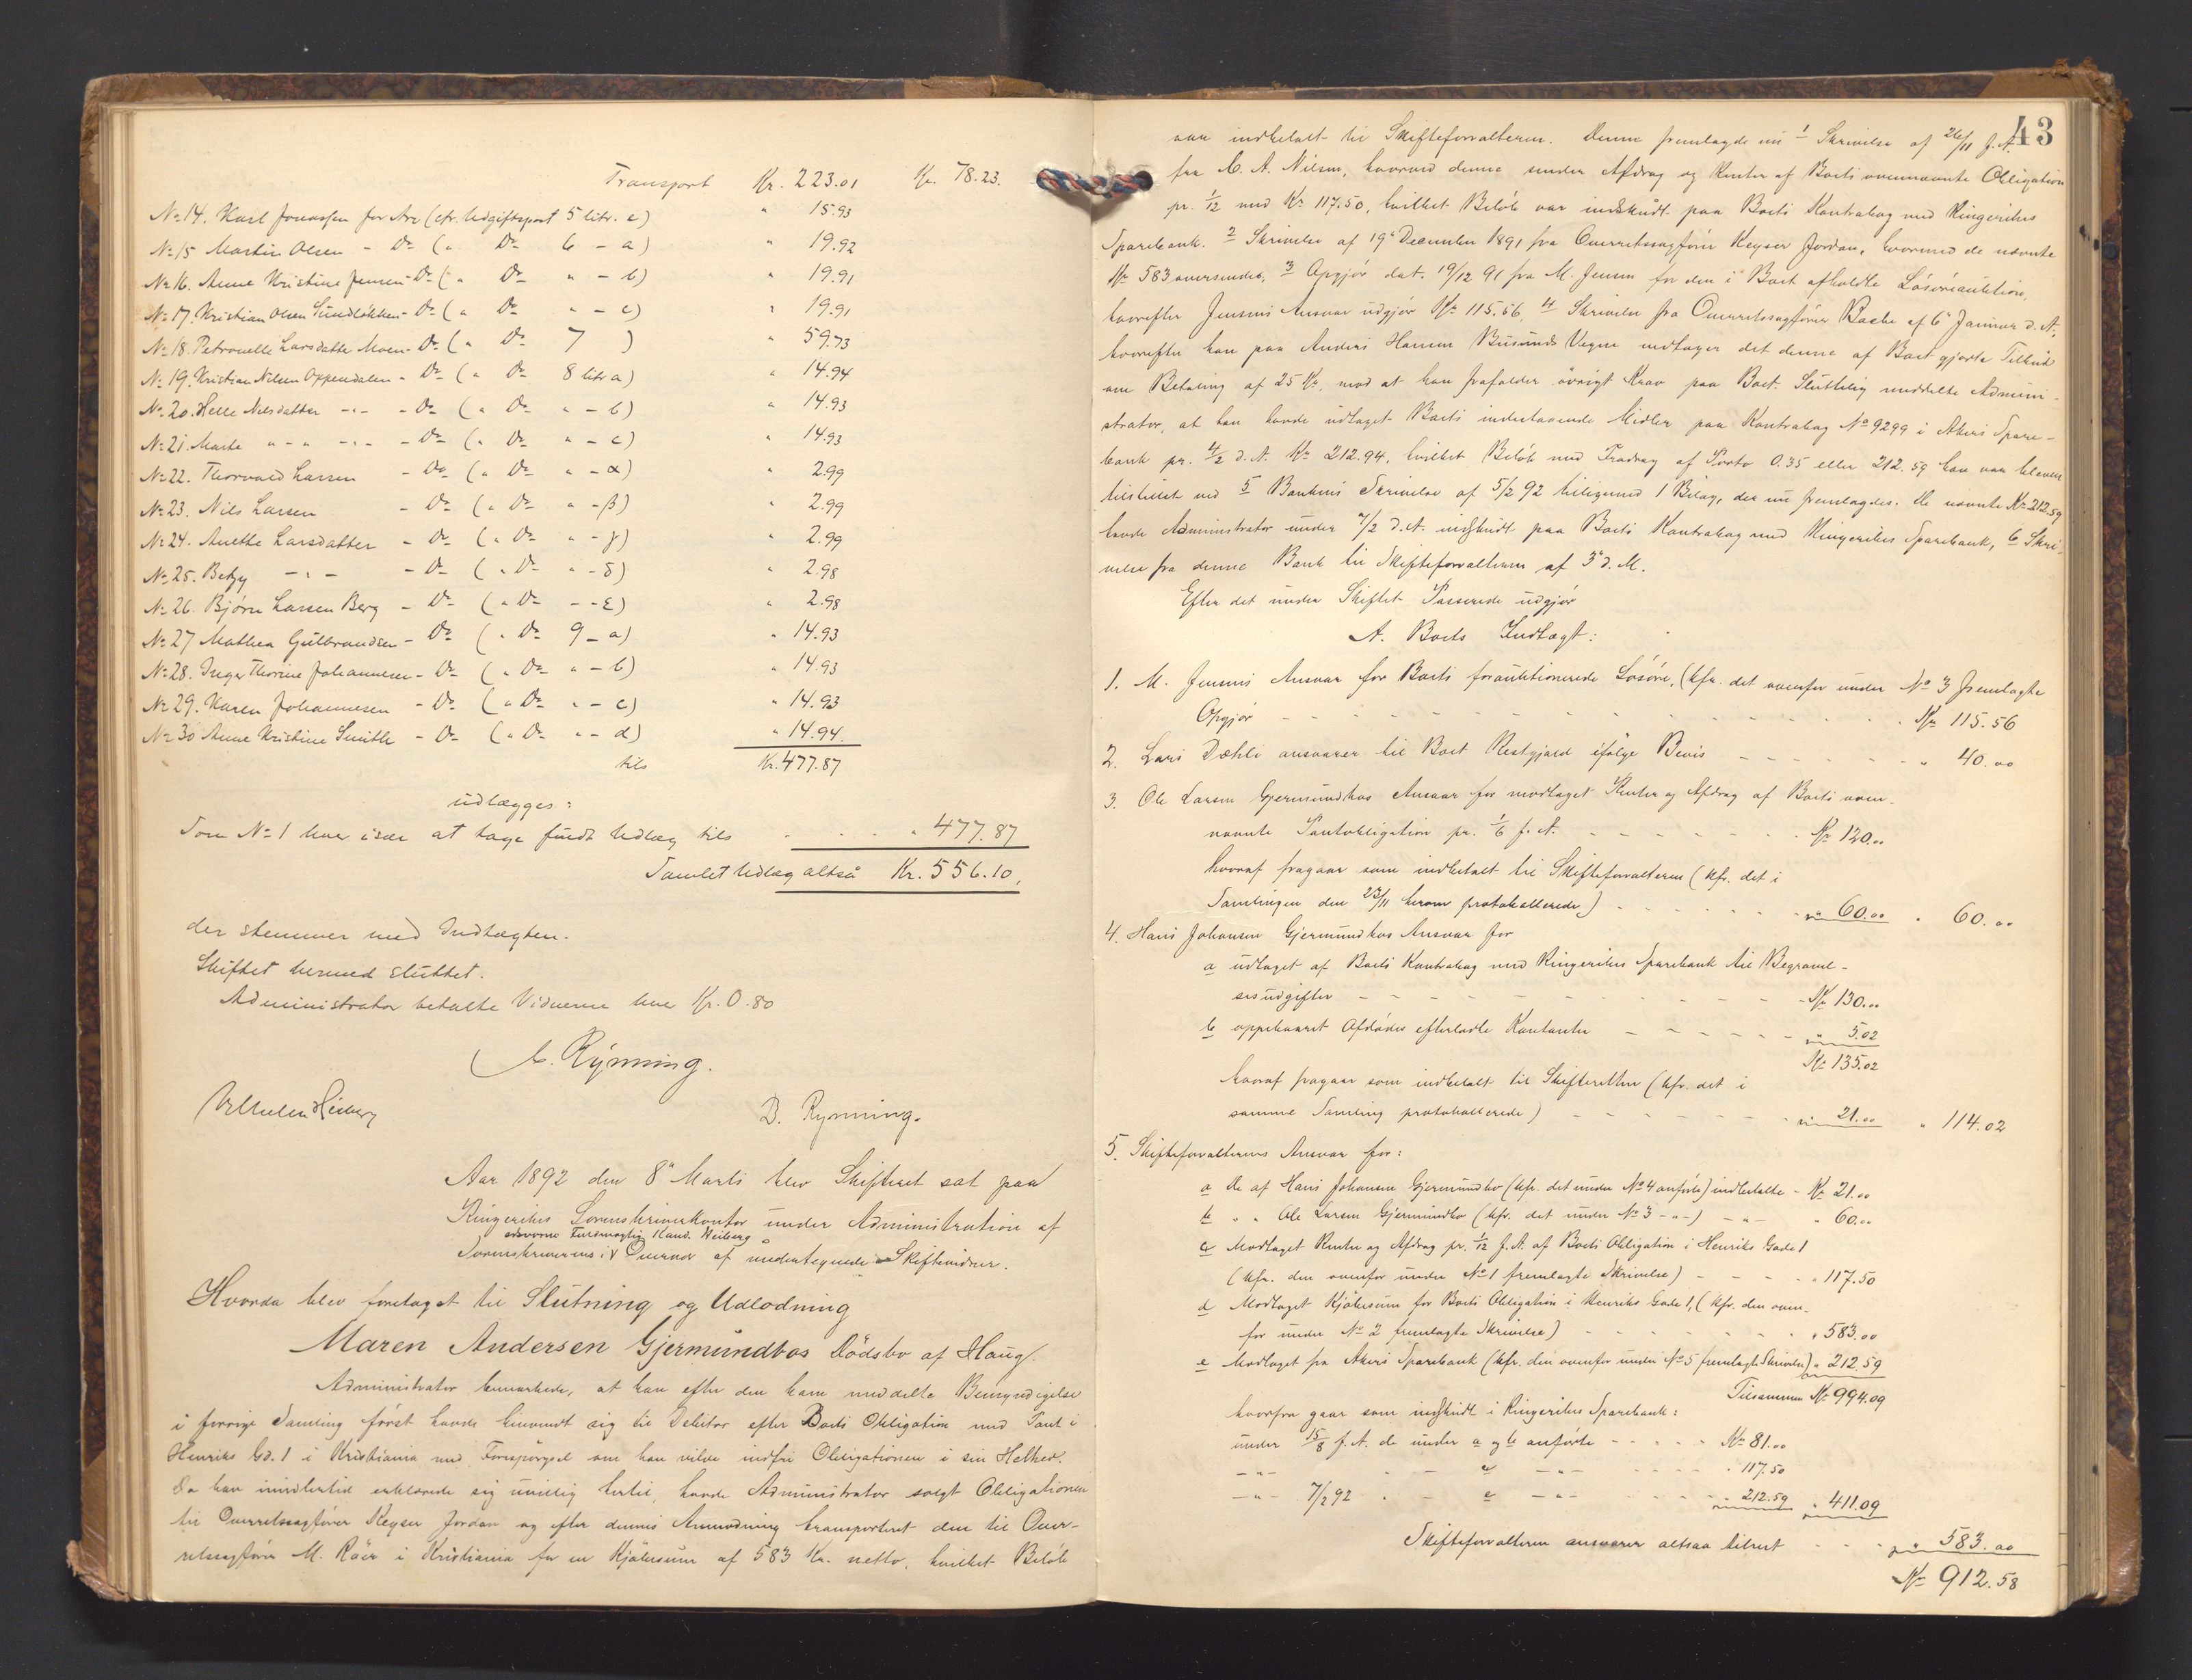 Transport Kr. 223.01 Kr. 78.23.
No 14. Karl Jonassen for Arv (cfr. Udgiftspost 5 litr. e) " 15.93
No 15 Martin Olsen - Do ( " Do 6 - a) " 19.92
No 16. Anne Kristine Jensen - Do ( " Do " - b) " 19.91
No 17. Kristian Olsen Sundløkken - Do ( " Do " - c) " 19.91
No 18. Petronelle Larsdatter Moen - Do ( " Do 7 ) " 59.73
No 19. Kristian Nilsen Oppendalen - Do ( " Do 8 litr a) " 14.94
No 20. Helle Nilsdatter -"- - Do ( " Do " - b) " 14.93
No 21. Marte " - " -"- - Do ( " Do " - c) " 14.93
No 22. Thorvald Larsen - Do ( " Do " - α) " 2.99
No 23. Nils Larsen - Do ( " Do " - β) " 2.99
No 24. Anette Larsdatter - Do ( " Do " - γ) " 2.99
No 25. Betzy -"- - Do ( " Do " - δ) " 2.98
No 26. Bjørn Larsen Berg - Do ( " Do " - ε) " 2.98
No 27 Mathea Gulbrandsen - Do ( " Do 9 - a) " 14.93
No 28. Inger Thorine Johannesen - Do ( " Do " - b) " 14.93
No 29. Karen Johannesen - Do ( " Do " - c) " 14.93
No 30 Anne Kristine Smith - Do ( " Do " - d) " 14.94.
tils Kr. 477.87
udlægges:
Som No 1 hver især at tage fuldt Udlæg tils " 477.87
Samlet Udlæg altså Kr. 556.10,
der stemmer med Indtægten.
Skiftet hermed sluttet.
Administrator betalte Vidnerne hver Kr. 0.80
C. Rynning.
Vilhelm Heiberg B. Rynning.
Aar 1892 den 8de Marts blev Skifteret sat paa
Ringerikes Sorenskriverkontor under Administration af
edsvorne Fuldmægtig Kand. Heiberg
Sorenskriverens i Overvær af undertegnede Skiftevidner.
Hvorda blev foretaget til Slutning og Udlodning
Maren Andersen Gjermundbos Dødsbo af Haug.
Administrator bemærkede, at han efter den ham meddelte Bemyndigelse
i forrige Samling først havde henvendt sig til Debitor efter Boets Obligation med Pant i
Henriks Gd. 1 i Kristiania med Forespørgsel om han vilde indfri Obligationen i sin Helhed.
Da han imidlertid erklærede sig uvillig hertil, havde Administrator solgt Obligationen
til Overretssagfører Keyser Jordan og efter dennes Anmodning transporteret den til Over-
retssagfører M. Röer i Kristiania for en Kjøbesum af 583 Kr. netto, hvilket Beløb
43
var indbetalt til Skifteforvalteren. Denne fremlagde nu 1 Skrivelse af 26/11 f. A.
fra C. A. Nilsen, hvorved denne sender Afdrag og Renter af Boets ovennævnte Obligation
pr. 1/12 med Kr 117.50, hvilket Beløb var indskudt paa Boets Kontrabog med Ringerikes
Sparebank. 2 Skrivelse af 19de December 1891 fra Overretssagfører Keyser Jordan, hvormed de nævnte
Kr 583 oversendes, 3 Opgjør dat. 19/12 91 fra M. Jensen for den i Boet afholdte Løsøreauktion,
hvorefter Jensens Ansvar udgjør Kr 115.56, 4 Skrivelse fra Overretssagfører Bache af 6te Januar d. A.,
hvorefter han paa Anders Hansen Busunds Vegne modtager det denne af Boet gjorte Tilbud
om Betaling af 25 Kr. mod at han frafalder øvrigt Krav paa Boet. Sluttelig meddelte Admini-
strator, at han havde udtaget Boets indestaaende Midler paa Kontrabog No 9299 i Akers Spare-
bank pr. 4/2 d. A. Kr 212.94, hvilket Beløb med Fradrag af Porto 0.35 eller 212.59 han var bleven
tilstillet ved 5 Bankens Skrivelse af 5/2 92 tilligemed 1 Bilag, der nu fremlagdes. De nævnte Kr 212.59
havde Administrator under 7/2 d. A. indskudt paa Boets Kontrabog med Ringerikes Sparebank, 6 Skri-
velse fra denne Bank til Skifteforvalteren af 3de d. M.
Efter det under Skiftet Passerede udgjør
A. Boets Indtægt:
1. M. Jensens Ansvar for Boets forauktionerede Løsøre, (kfr. det ovenfor under No 3 fremlagte
Opgjør - - - Kr 115.56
2. Lars Dæhli ansvarer til Boet Restgjæld ifølge Bevis - - - " 40.00
3. Ole Larsen Gjermundbos Ansvar for modtaget Renter og Afdrag af Boets oven-
nævnte Pantobligation pr. 1/6 f. A. - - - Kr 120.00
hvoraf fragaar som indbetalt til Skifteforvalteren (kfr. det i
Samlingen den 23/11 herom protokollerede) - - - " 60.00 " 60.00
4. Hans Johansen Gjermundbos Ansvar for
a udtaget af Boets Kontrabog med Ringerikes Sparebank til Begravel-
sesudgifter - - - Kr 130.00
b oppebaaret Afdødes efterladte Kontanter - - - " 5.02
Kr 135.02
hvoraf fragaar som indbetalt til Skifteretten (kfr. det i
samme Samling protokollerede) - - - " 21.00 " 114.02
5. Skifteforvalterens Ansvar for:
a De af Hans Johansen Gjermundbo (kfr. det under No 4 anførte) indbetalte - Kr 21.00
b " " Ole Larsen Gjermundbo (kfr. det under No 3 -"-) -"- " 60.00
c Modtaget Renter og Afdrag pr. 1/12 f. A. af Boets Obligation i Henriks Gade 1
(kfr. den ovenfor under No 1 fremlagte Skrivelse) - - - " 117.50
d Modtaget Kjøbesum for Boets Obligation i Henriks Gade 1, (kfr. den oven-
for under No 2 fremlagte Skrivelse) - - - " 583.00
e Modtaget fra Akers Sparebank (kfr. den ovenfor under No 5 fremlagte Skrivelse) " 212.59
Tilsammen Kr 994.09
hvorfra gaar som indskudt i Ringerikes Sparebank:
under 15/8 f. A. de under a og b anførte - - - Kr 81.00
-"- " - c -"- - - - " 117.50
-"- 7/2 92 " - e -"- - - - " 212.59 " 411.09
Skifteforvalteren ansvarer altsaa tilrest - - - " 583.00
Kr 912.58